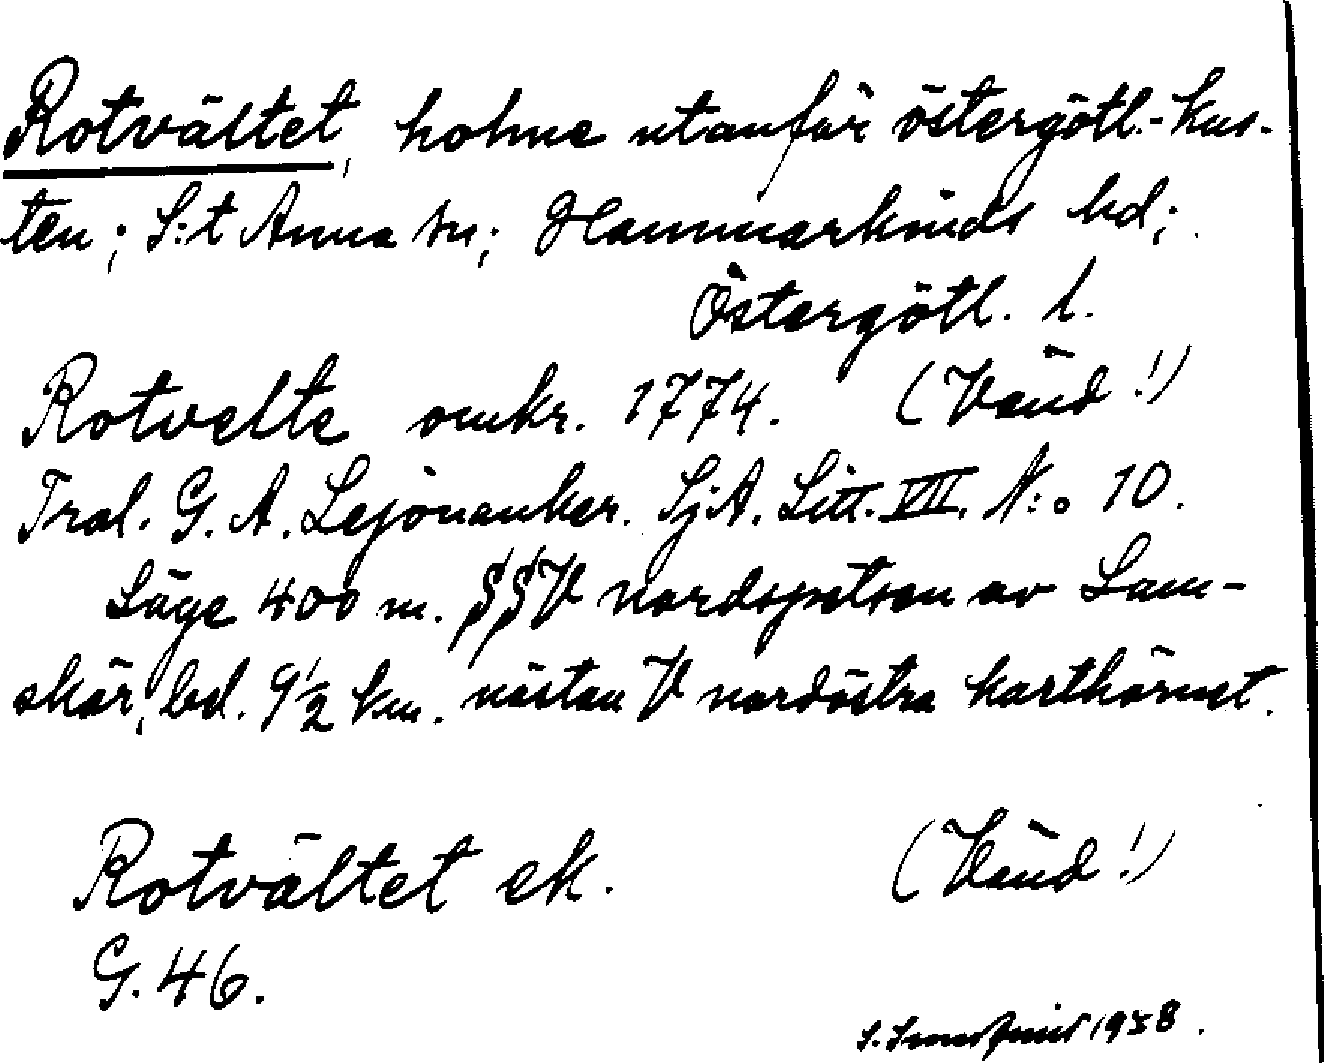 Rotvältet, holme utanför östergötl.-kus-
ten; S:t Anna sn; Hammarkinds hd;
Östergötl. l.
Rotvelte omkr. 1774. (Vänd!)
Tral. G. A. Lejonanker. SjA. Litt. VIII. N:o 10.
Läge 400 m. SSV nordspetsen av Lam-
skär, bel. 9 1/2 km. nästan V nordöstra karthörnet.
Rotvältet ek. (Vänd!)
G. 46.
S. 1958.